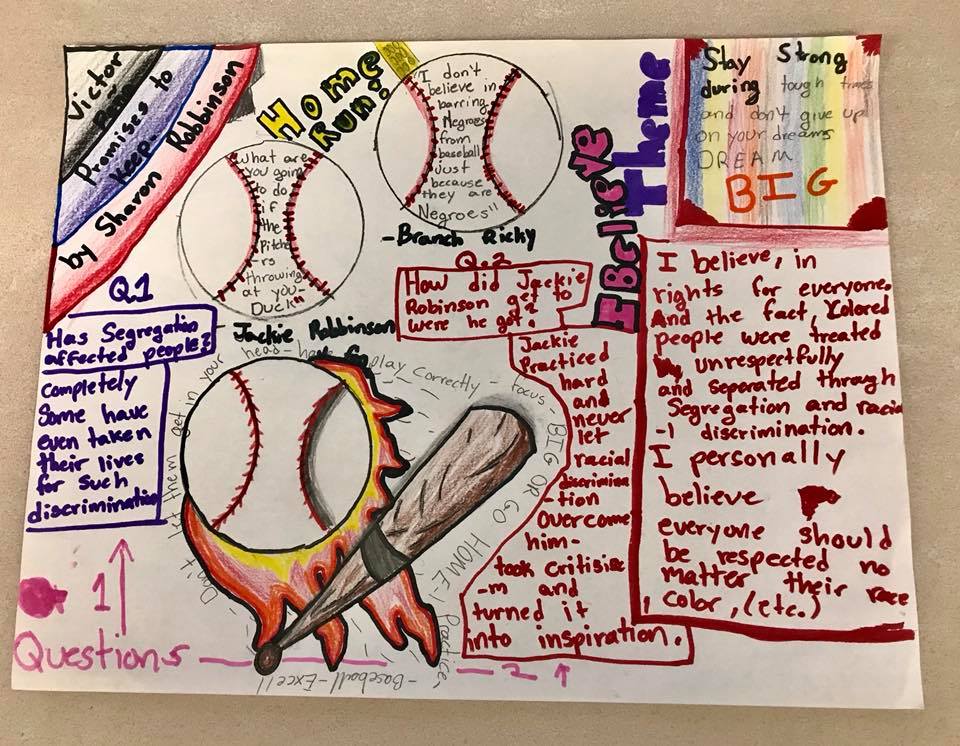 Victor
Promises to
Keep
by Sharon Robbinson
Home
Run!
"What are
you going
to do
if
the
Pitche
-rs
throwing
at you-
Duck"
- Jackie Robbinson
"I don't
believe in
barring
Negroes
from
baseball
just
because
they are
Negroes"
-Branch Ricky
I Believe
Theme
Stay Strong
during tough times
and don't give up
on your dreams
DREAM
BIG
Q.1
Has Segregation
affected people?
Completely
Some have
even taken
their lives
for such
discrimination
Q.2
How did Jackie
Robinson get to
were he got?
Jackie
Practiced
hard
and
never
let
racial
discrimina
-tion
overcome
him-
took critisise
-m and
turned it
into inspiration.
I believe, in
rights for everyone.
And the fact, Colored
people were treated
unrespectfully
and seperated through
Segregation and racia
-l discrimination.
I personally
believe
everyone should
be respected no
matter their race
, color, (etc.)
Don't let them get in your head- play correctly - focus - BIG OR GO HOME - Practice -
- Baseball - Excell
1
Questions
2